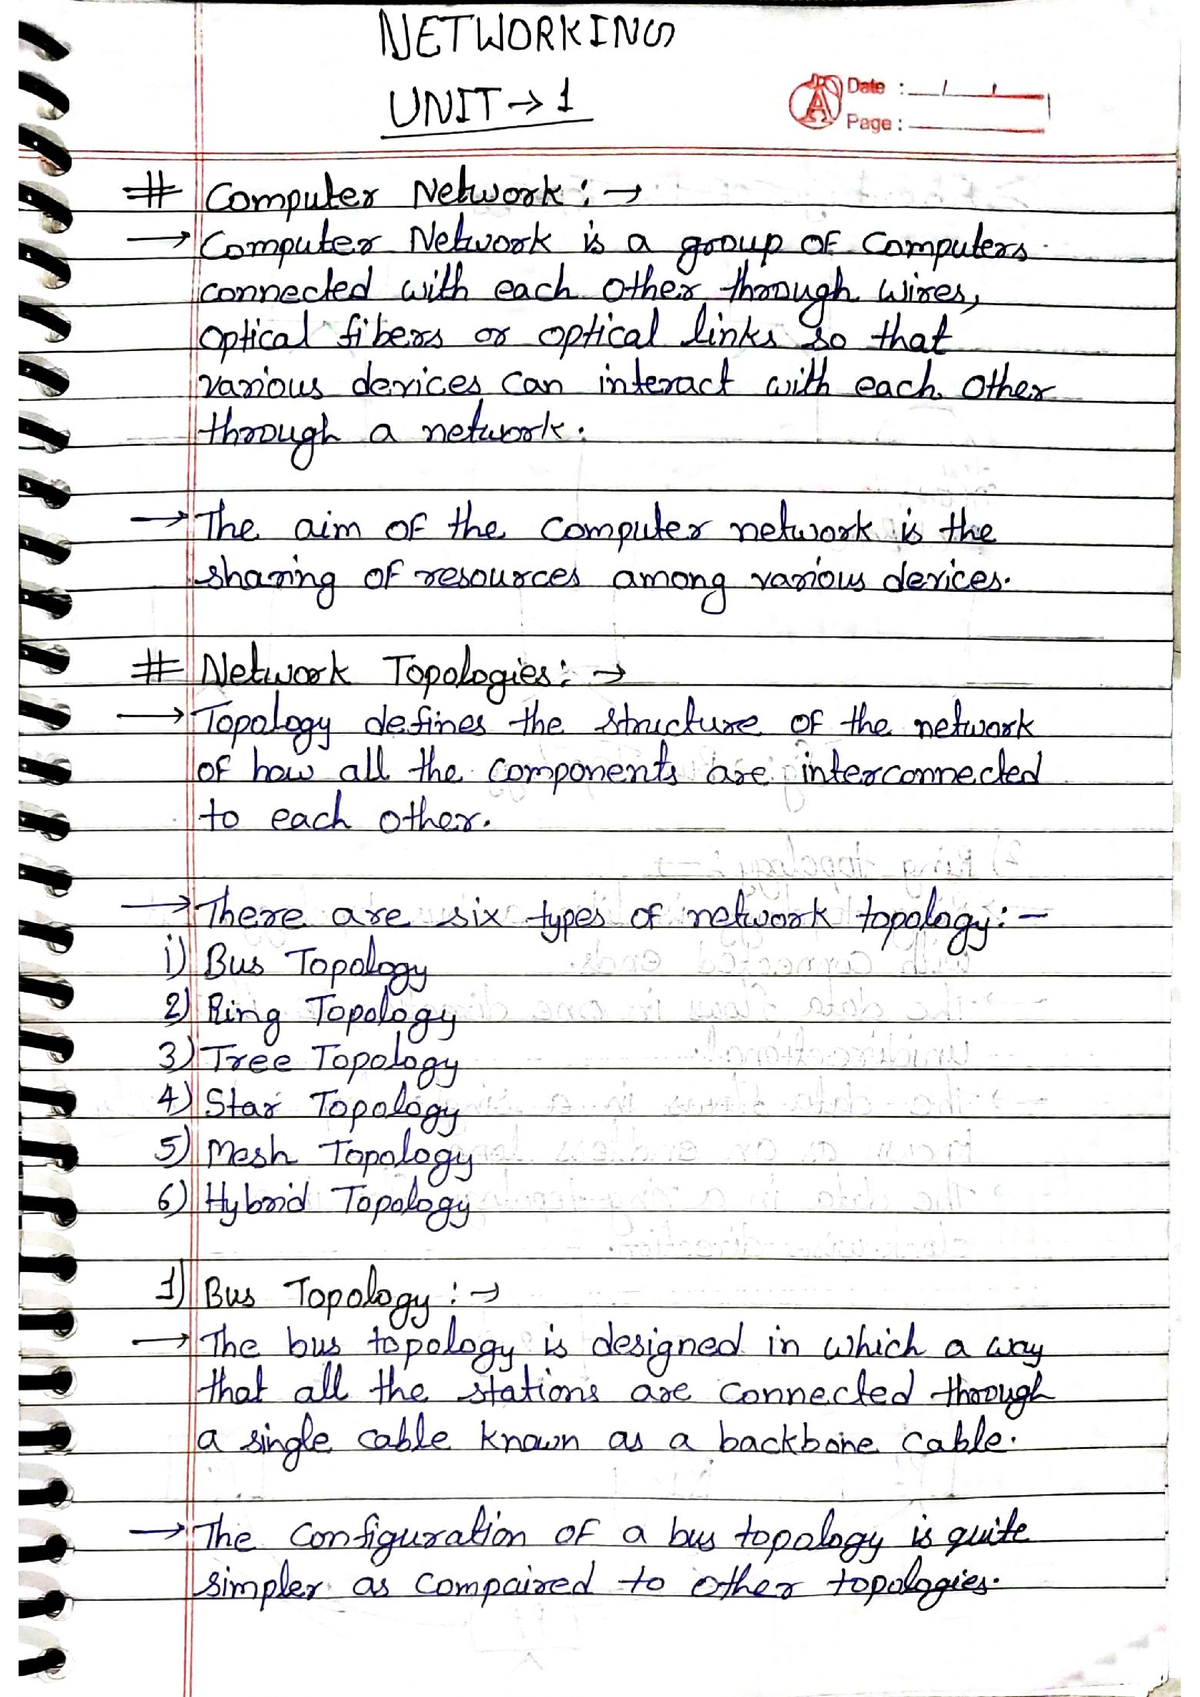 NETWORKING
UNIT → 1
Date : / /
Page :
# Computer Network : →
→ Computer Network is a group of computers
connected with each other through wires,
optical fibers or optical links so that
various devices can interact with each other
through a network.
→ The aim of the computer network is the
sharing of resources among various devices.
# Network Topologies : →
→ Topology defines the structure of the network
of how all the components are interconnected
to each other.
→ There are six types of network topology : -
1) Bus Topology
2) Ring Topology
3) Tree Topology
4) Star Topology
5) Mesh Topology
6) Hybrid Topology
1) Bus Topology : →
→ The bus topology is designed in which a way
that all the stations are connected through
a single cable known as a backbone cable.
→ The configuration of a bus topology is quite
simpler as compaired to other topologies.